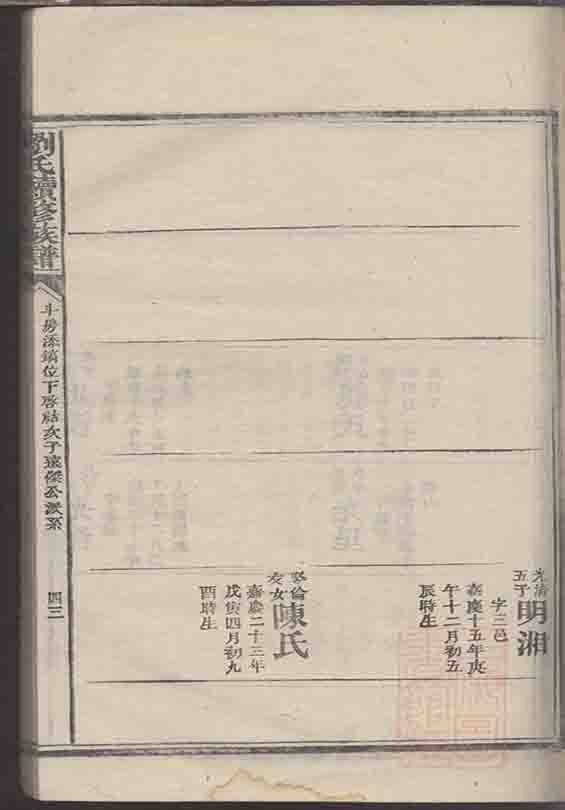 光濤
五子
明湘
字三邑
嘉慶十五年庚
午十二月初五
辰時生
岑倫
長女
陳氏
嘉慶二十三年
戊寅四月初九
酉時生
劉氏續修族譜
斗房添鎬位下啓祜次子遠傑公派系
四三